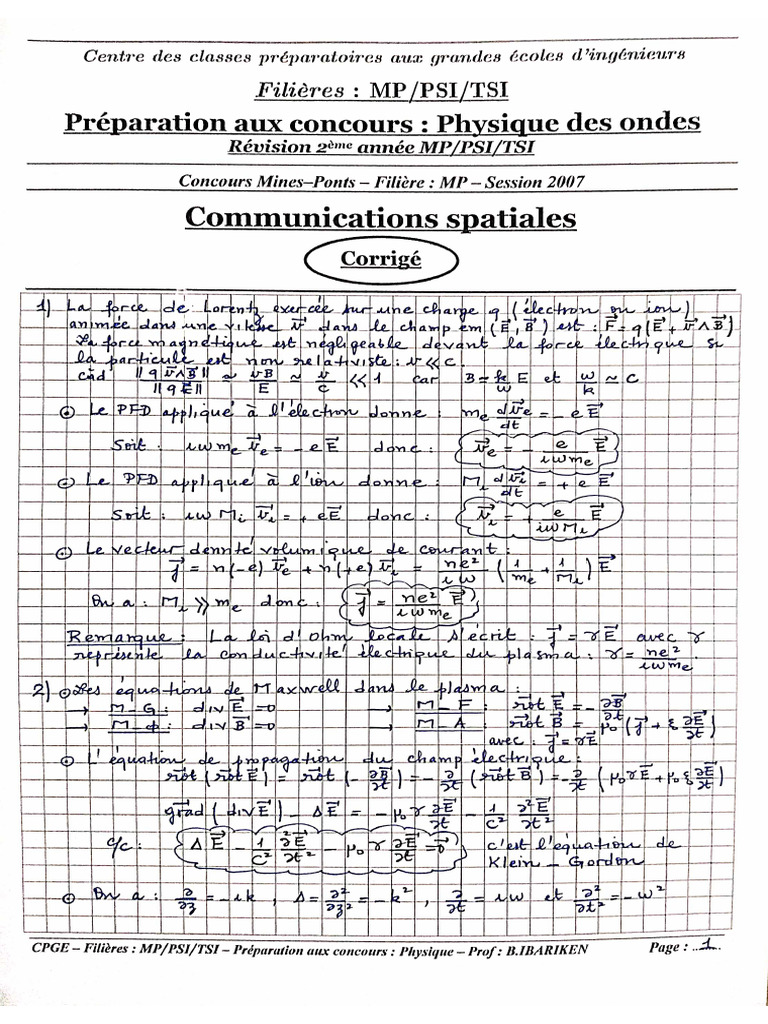 Centre des classes préparatoires aux grandes écoles d'ingénieurs
Filières : MP/PSI/TSI
Préparation aux concours : Physique des ondes
Révision 2ème année MP/PSI/TSI
Concours Mines–Ponts – Filière : MP – Session 2007
Communications spatiales
Corrigé
1) La force de Lorentz exercée sur une charge q (électron ou ion)
animée dans une vitesse v⃗ dans le champ em (E⃗, B⃗) est : F⃗ = q(E⃗ + v⃗ ∧ B⃗)
La force magnétique est négligeable devant la force électrique si
la particule est non relativiste : v ≪ c.
càd ||q v⃗∧B⃗|| / ||q E⃗|| ≃ vB/E ≃ v/c ≪ 1 car B = k/ω E et ω/k ≃ C
⊙ Le PFD appliqué à l'électron donne : me dv⃗e/dt = - e E⃗
Soit : iω me v⃗e = - e E⃗ donc : v⃗e = - e/(iω me) E⃗
⊙ Le PFD appliqué à l'ion donne : Mi dv⃗i/dt = + e E⃗
Soit : iω Mi v⃗i = + e E⃗ donc : v⃗i = + e/(iω Mi) E⃗
⊙ Le vecteur densité volumique de courant :
j⃗ = n(-e) v⃗e + n(+e) v⃗i = ne²/iω (1/me + 1/Mi) E⃗
On a : Mi ≫ me donc : j⃗ = ne²/(iω me) E⃗
Remarque : La loi d'ohm locale s'écrit : j⃗ = γE⃗ avec γ
représente la conductivité électrique du plasma : γ = ne²/(iω me)
2) ⊙ Les équations de Maxwell dans le plasma :
→ M_G : div E⃗ = 0 → M_F : rot⃗ E⃗ = - ∂B⃗/∂t
→ M_Φ : div B⃗ = 0 → M_A : rot⃗ B⃗ = μ₀ (j⃗ + ε₀ ∂E⃗/∂t)
avec : j⃗ = γE⃗
⊙ L'équation de propagation du champ électrique :
rot⃗ (rot⃗ E⃗) = rot⃗ (- ∂B⃗/∂t) = - ∂/∂t (rot⃗ B⃗) = - ∂/∂t (μ₀γE⃗ + μ₀ε₀ ∂E⃗/∂t)
grad⃗ (div E⃗) - ΔE⃗ = - μ₀ γ ∂E⃗/∂t - 1/C² ∂²E⃗/∂t²
c/c : ΔE⃗ - 1/C² ∂²E⃗/∂t² - μ₀ γ ∂E⃗/∂t = 0⃗ c'est l'équation de
Klein - Gordon
⊙ On a : ∂/∂z = - ik , Δ = ∂²/∂z² = - k² , ∂/∂t = iω et ∂²/∂t² = - ω²
CPGE – Filières : MP/PSI/TSI – Préparation aux concours : Physique – Prof : B.IBARIKEN Page : ..1..